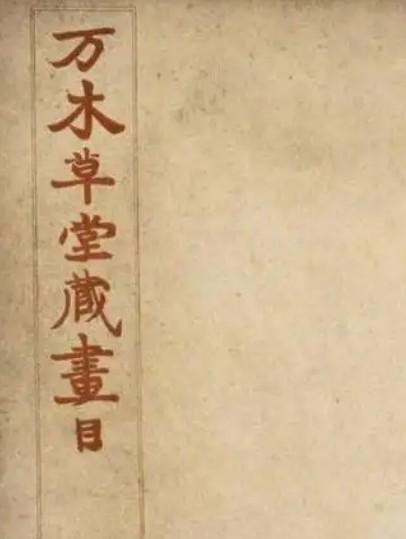 万木草堂藏畫目